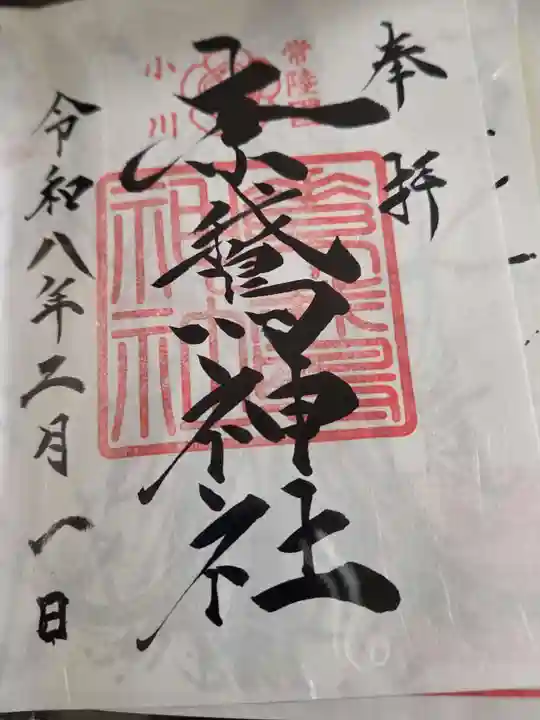 奉拝
常陸国
小川
素鵞神社
令和八年二月八日